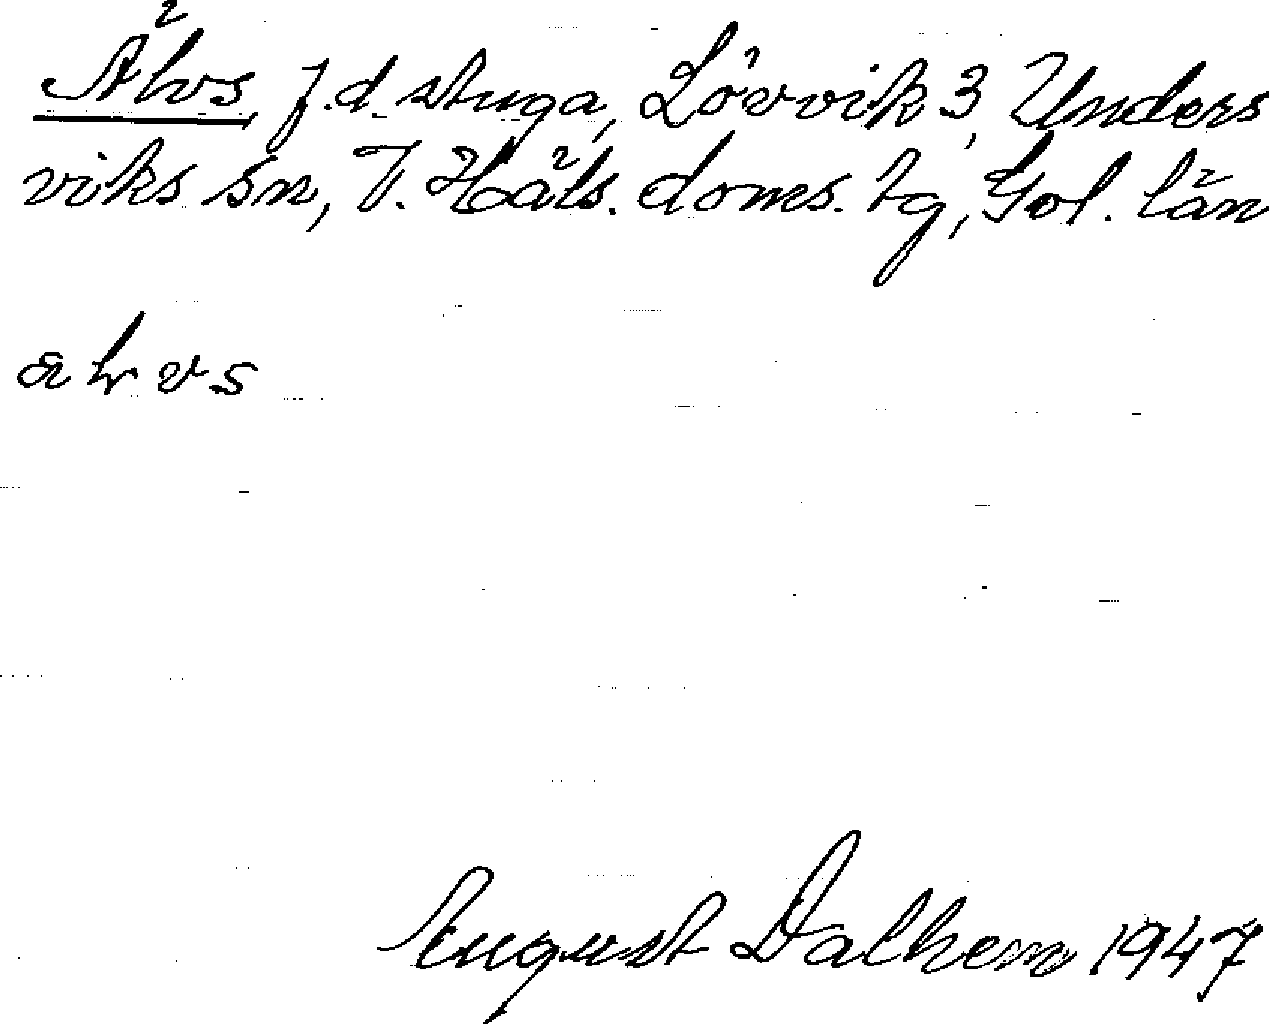 Älvs, f.d. stuga, Lövvik 3, Unders
viks sn, V. Häls. doms. tg, Gäl. län
August Dalhem 1947